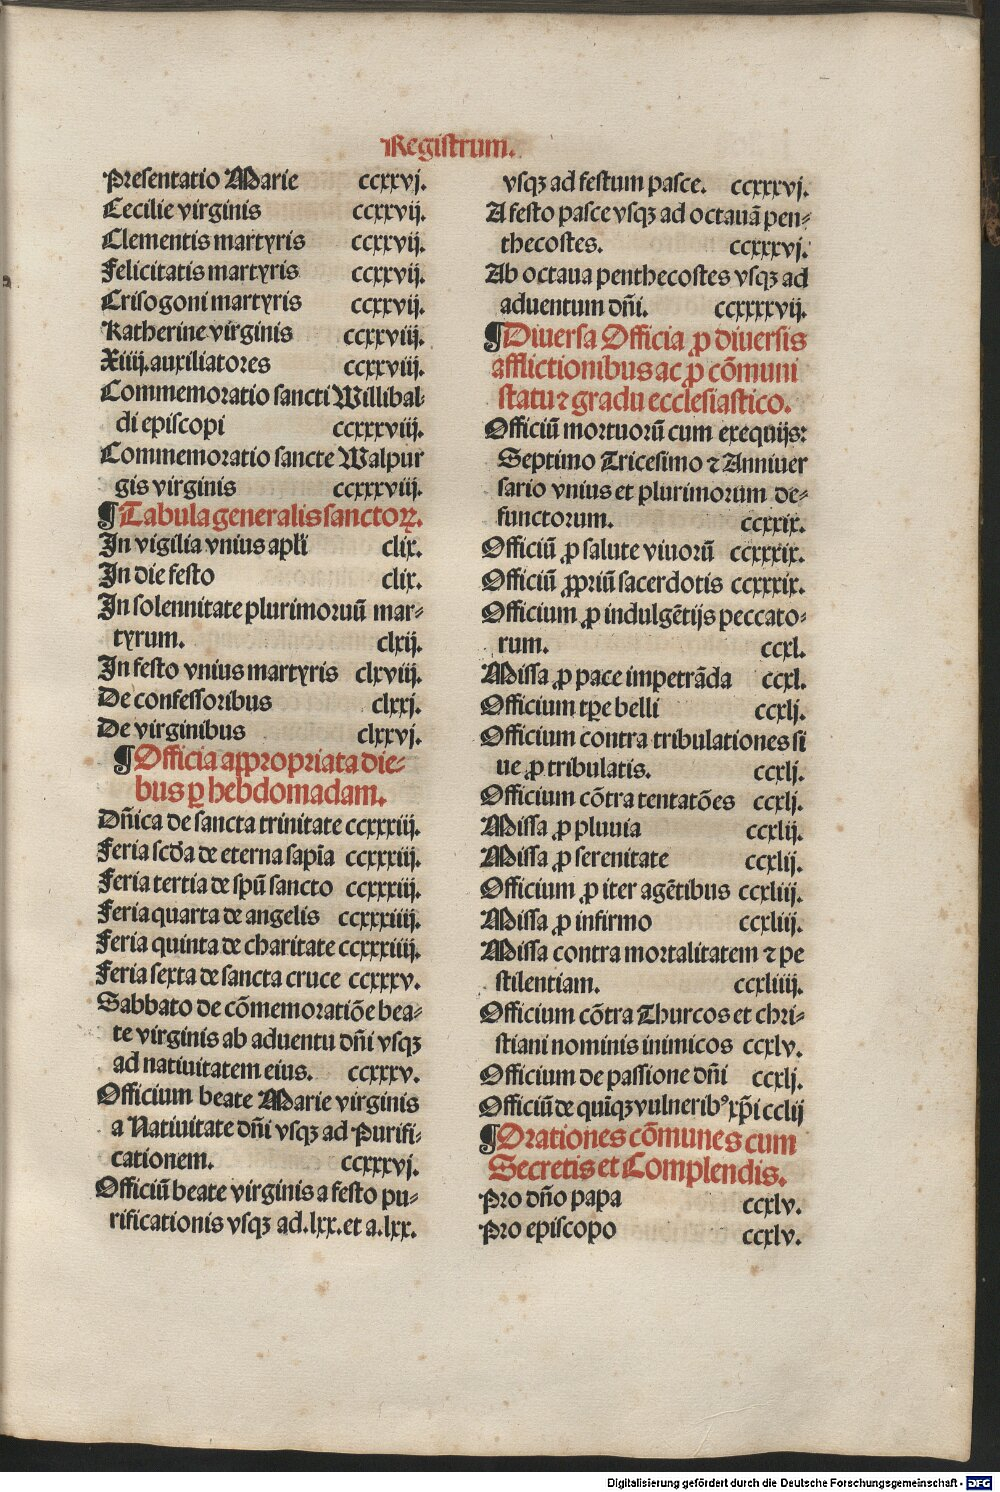 Registrum.
Presentatio Marie ccxxvj.
Cecilie virginis ccxxvij.
Clementis martyris ccxxvij.
Felicitatis martyris ccxxvij.
Crisogoni martyris ccxxvij.
Katherine virginis ccxxviij.
Xiiij.auxiliatores ccxxviij.
Commemoratio sancti Willibal-
di episcopi ccxxxviij.
Commemoratio sancte Walpur
gis virginis ccxxxviij.
¶Tabula generalis sanctoꝝ.
In vigilia vnius apl̃i clix.
In die festo clix.
In solennitate plurimoruū mar-
tyrum. clxij.
In festo vnius martyris clxviij.
De confessoribus clxxj.
De virginibus clxxvj.
¶Officia appropriata die-
bus ꝑ hebdomadam.
Dñica de sancta trinitate ccxxxiij.
Feria scd̃a de eterna sapĩa ccxxxiij.
Feria tertia de spũ sancto ccxxxiij.
Feria quarta de angelis ccxxxiiij.
Feria quinta de charitate ccxxxiiij.
Feria sexta de sancta cruce ccxxxv.
Sabbato de cõmemoratiõe bea-
te virginis ab aduentu dñi vsqꝫ
ad natiuitatem eius. ccxxxv.
Officium beate Marie virginis
a Natiuitate dñi vsqꝫ ad Purifi-
cationem. ccxxxvj.
Officiũ beate virginis a festo pu-
rificationis vsqꝫ ad.lxx.et a.lxx.
vsqꝫ ad festum pasce. ccxxxvj.
A festo pasce vsqꝫ ad octauã pen-
thecostes. ccxxxvj.
Ab octaua penthecostes vsqꝫ ad
aduentum dñi. ccxxxxvij.
¶Diuersa Officia ꝓ diuersis
afflictionibus ac ꝓ cõmuni
statu ⁊ gradu ecclesiastico.
Officiũ mortuorũ cum exequijs:
Septimo Tricesimo ⁊ Anniuer
sario vnius et plurimorum de-
functorum. ccxxix.
Officiũ ꝓ salute viuorũ ccxxxix.
Officiũ ꝓpriũ sacerdotis ccxxxix.
Officium ꝓ indulgẽtijs peccato-
rum. ccxl.
Missa ꝓ pace impetrãda ccxl.
Officium tꝑe belli ccxlj.
Officium contra tribulationes si
ue ꝓ tribulatis. ccxlj.
Officium cõtra tentatões ccxlj.
Missa ꝓ pluuia ccxlij.
Missa ꝓ serenitate ccxlij.
Officium ꝓ iter agẽtibus ccxliij.
Missa ꝓ infirmo ccxliij.
Missa contra mortalitatem ⁊ pe
stilentiam. ccxliiij.
Officium cõtra Thurcos et chri-
stiani nominis inimicos ccxlv.
Officium de passione dñi ccxlj.
Officiũ de quĩqꝫ vulneribꝰ xp̃i cclij
¶Orationes cõmunes cum
Secretis et Complendis.
Pro dño papa ccxlv.
Pro episcopo ccxlv.
Digitalisierung gefördert durch die Deutsche Forschungsgemeinschaft - DFG